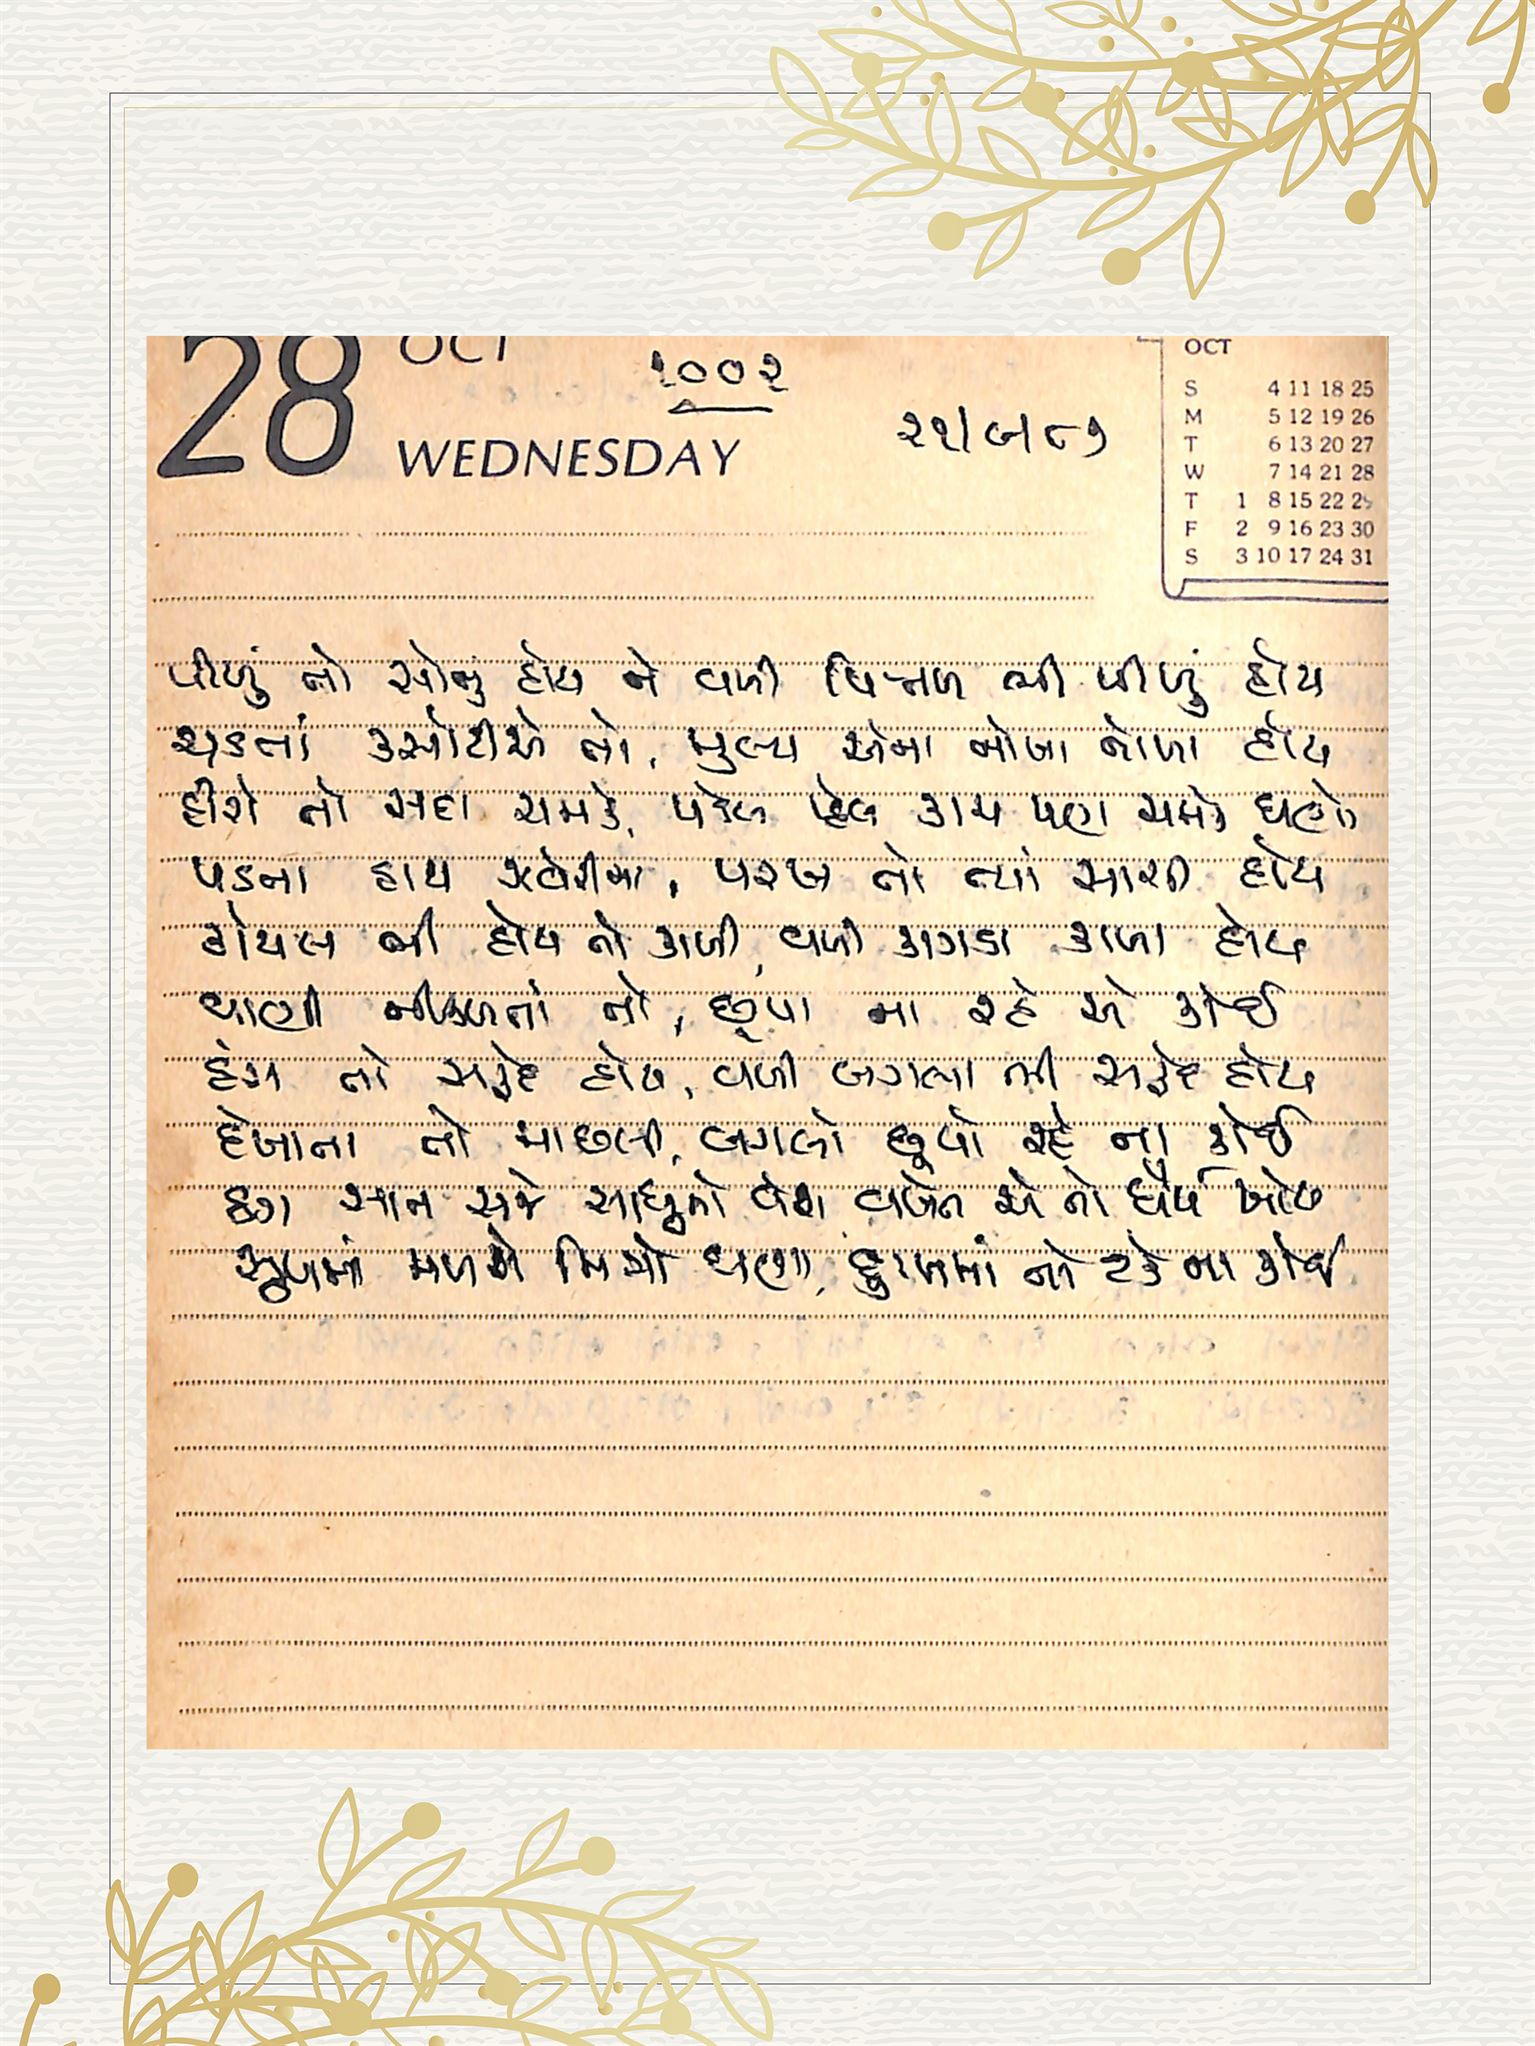 28 OCT
૧૦૦૨
WEDNESDAY
૨૧/૮/૮૭
OCT
S 4 11 18 25
M 5 12 19 26
T 6 13 20 27
W 7 14 21 28
T 1 8 15 22 29
F 2 9 16 23 30
S 3 10 17 24 31
પીળું તો સોનું હોય ને વળી પિત્તળ ભી પીળું હોય
ચડતાં કસોટીએ તો, મુલ્ય એના નોખા નોખા હોય
હીરો તો સદા ચમકે, પડેલ કાચ પણ ચમકે ઘણો
પડતા હાથ ઝવેરીમા, પરખ તો ત્યાં સાચી હોય
કોયલ ભી હોય તો કાળી, વળી કાગડા કાળા હોય
વાણી નીકળતાં તો, છૂપા ના રહે એ કોઈ
હંસ તો સફેદ હોય, વળી બગલા ભી સફેદ હોય
દેખાતા તો માછલી, બગલો છૂપો રહે ના કોઈ
ઠગ સાન સજે સાધુનો વેશ વખત એ તો ધૈર્ય ખોય
સુખમાં મળશે મિત્રો ઘણા, દુઃખમાં તો ટકે ના કોઈ